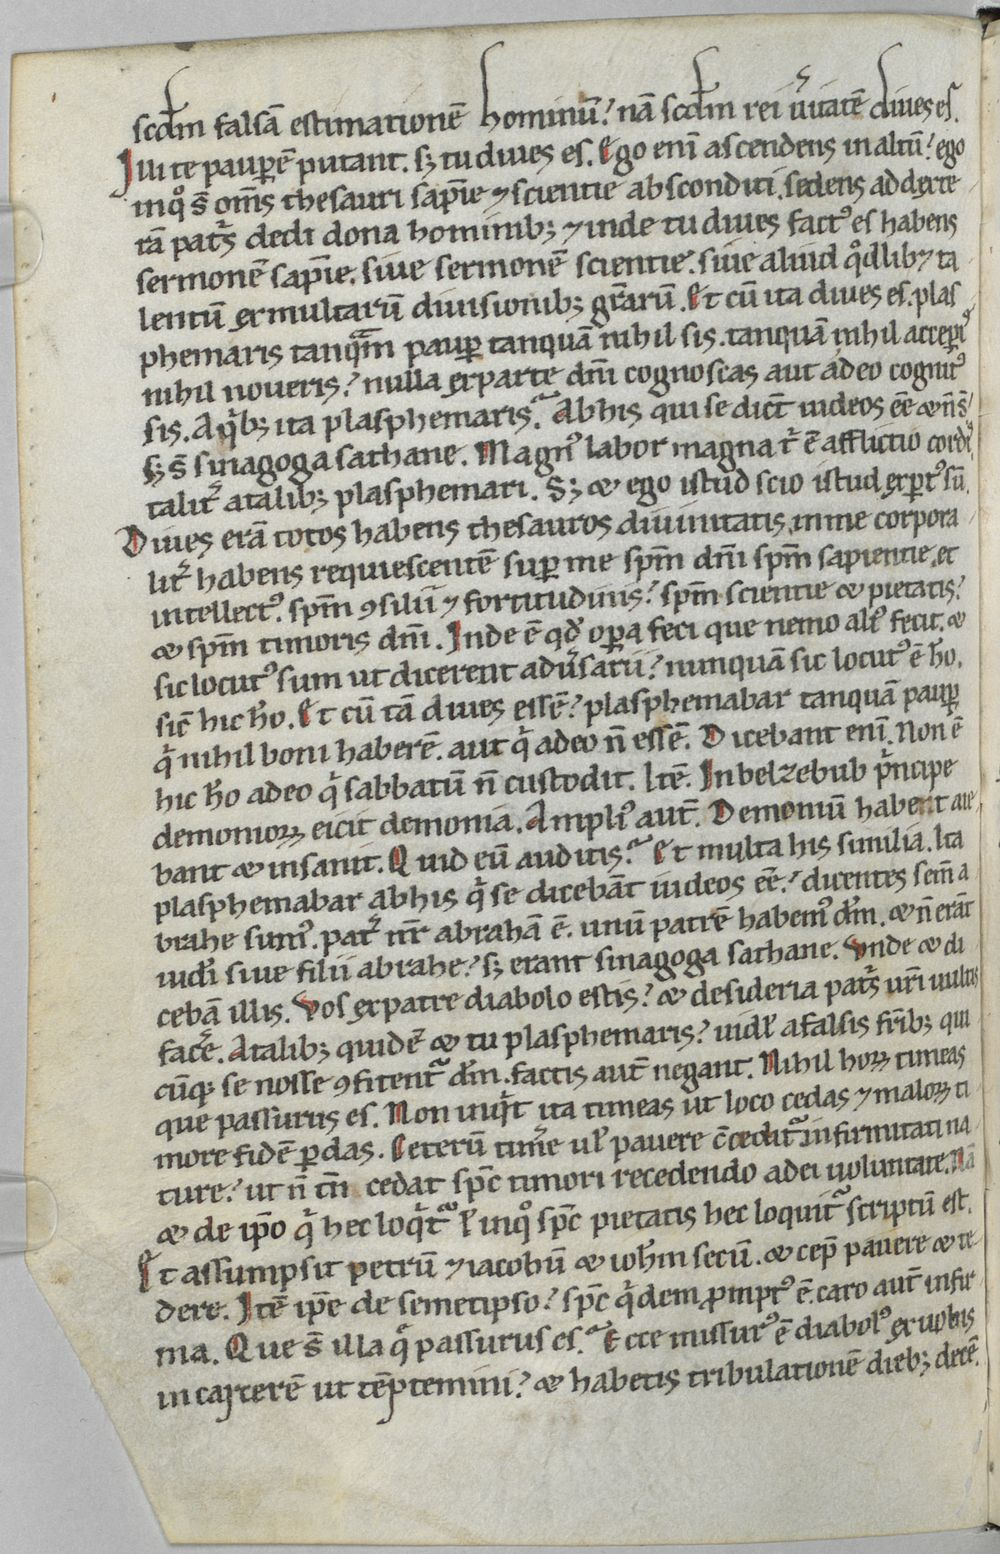 scdm falsā estimationē hominū? nā scdm rei ūitatē diues es.
Illi te paupē putant. sꝫ tu diues es. Ego enī ascendens in altū? ego
in qͦ s̄ om̄s thesauri sapīe ⁊ scientie absconditi. sedens ad dexte
rā pat̄s dedi dona hominibꝫ ⁊ inde tu diues factꝰ es habens
sermonē sapīe. siue sermonē scientie. siue aliud qͦdlibꝫ ta
lentū ex multarū diuisionibꝫ gr̄arū. Et cū ita diues es. plas
phemaris tanqᵃm paup tanquā nihil sis. tanquā nihil acceperis
nihil noueris? nulla ex parte dn̄i cognoscas aut a deo cognitꝰ
sis. A qⁱbꝫ ita plasphemaris? Ab his qui se dict̄ iudeos eē & n̄ s̄?
sꝫ s̄ sinagoga sathane. Magnꝰ labor magna r̄ ē afflictio cordi
talit̄ a talibꝫ plasphemari. Sꝫ & ego istud scio istud expertꝰ sū.
Diues erā totos habens thesauros diuinitatis in me corpora
lit̄ habens requiescentē sup me sp̄m dn̄i sp̄m sapientie et
intellectꝰ. sp̄m ꝯsilii ⁊ fortitudinis? sp̄m scientie & pietatis?
& sp̄m timoris dn̄i. Inde ē qd̄ opa feci que nemo alꝰ fecit. &
sic locutꝰ sum ut dicerent adūsarii? nunquā sic locutꝰ ē ho.
sic̄ hic ho. Et cū tā diues essē? plasphemabar tanquā paup
qⁱ nihil boni haberē. aut qⁱ a deo n̄ essē. Dicebant enī. Non ē
hic ho a deo qⁱ sabbatū n̄ custodit. Itē. In belzebub pⁱncipe
demonioꝝ eicit demonia. Ampliꝰ aut̄. Demoniū habent aie
bant & insanit. Quid eū auditis? Et multa his similia. Ita
plasphemabar ab his qⁱ se dicebāt iudeos eē? dicentes sem̄ a
brahe sumꝰ. pat̄ nr̄ abrahā ē. unū patrē habemꝰ dm̄. & n̄ erāt
iudi siue filii abrahe? sꝫ erant sinagoga sathane. Vnde & di
cebā illis. Vos ex patre diabolo estis? & desideria pat̄s ur̄i uultis
fac̄e. A talibꝫ quidē & tu plasphemaris? uidꝫ a falsis fr̄ibꝫ qui
cūqꝫ se nosse ꝯfitentᵃ dm̄. factis aut̄ negant. Nihil hoꝝ timeas
que passurus es. Non inqⁱt ita timeas ut loco cedas ⁊ maloꝝ ti
more fidē pdas. Ceterū tim̄e ul̄ pauere c̄cedit̄ infirmitati na
ture? ut n̄ tn̄ cedat sp̄c timori recedendo a dei uoluntate. Nā
& de ip̄o qⁱ hec loqⁱtᵃ l̄ in qͦ sp̄c pietatis hec loquitᵃ scriptū est.
Et assumpsit petrū ⁊ iacobū & ioh̄m secū. & cep̄ pauere & te
dere. Itē ip̄e de semetipso? sp̄c qⁱdem pmptꝰ ē. caro aut̄ infir
ma. Que s̄ illa qͤ passurus es? Ecce missurꝰ ē diabolꝰ ex uobis
in carcerē ut tēptemini? & habetis tribulationē diebꝫ decē.